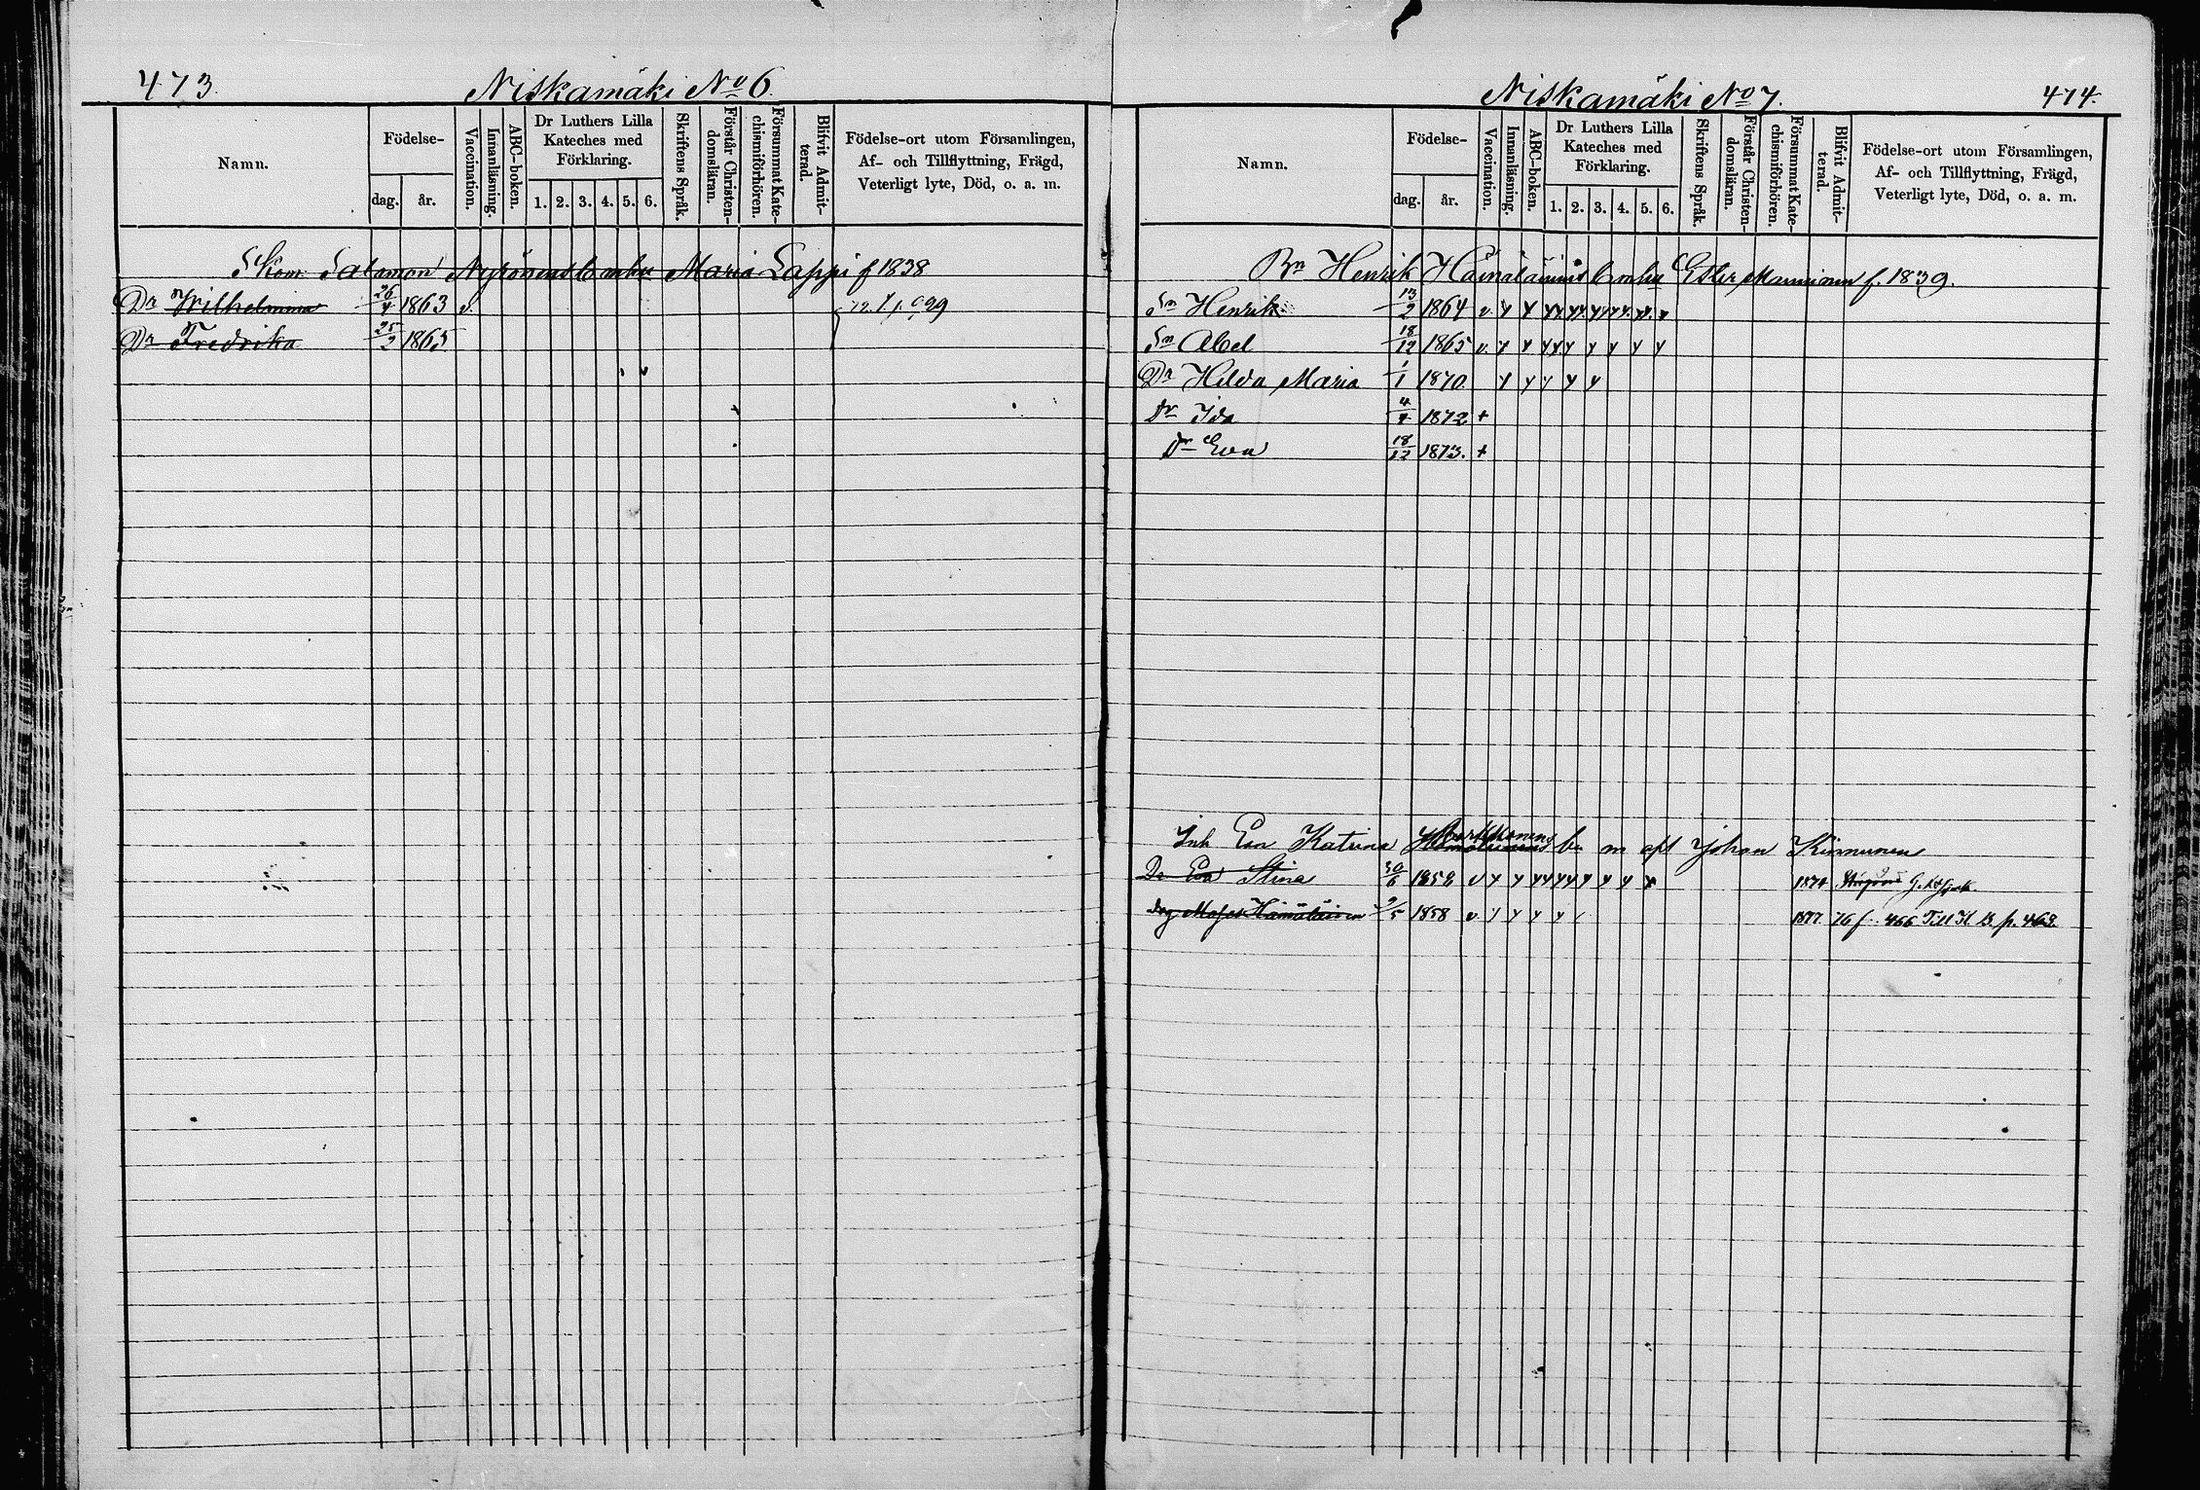 473.
Niskamäki No 6.
Namn.
Födelse-
dag.
år.
Vaccination.
Innanläsning.
ABC-boken.
Dr Luthers Lilla
Kateches med
Förklaring.
1. 2. 3. 4. 5. 6.
Skriftens Språk.
Förstår Christen-
domsläran.
Försummat Kate-
chismiförhören.
Blifvit Admit-
terad.
Födelse-ort utom Församlingen,
Af- och Tillflyttning, Frägd,
Veterligt lyte, Död, o. a. m.
Skom. Salomon Nyrönens b m hu Maria Lappi f 1838
Dr Wilhelmina 26/4 1863 v.
Dr Fredrika 25/2 1865
Niskamäki No 7.
474.
Namn.
Födelse-
dag.
år.
Vaccination.
Innanläsning.
ABC-boken.
Dr Luthers Lilla
Kateches med
Förklaring.
1. 2. 3. 4. 5. 6.
Skriftens Språk.
Förstår Christen-
domsläran.
Försummat Kate-
chismiförhören.
Blifvit Admit-
terad.
Födelse-ort utom Församlingen,
Af- och Tillflyttning, Frägd,
Veterligt lyte, Död, o. a. m.
Bn Henrik Hämäläinens b m hu Ester Manninen f. 1839.
Sn Henrik 13/2 1864 v
Sn Abel 18/12 1865 v
Dr Hilda Maria 1/1 1870
Dr Ida 4/4 1872 +
Dr Eva 18/12 1873. +
Inh Eva Katrina b m afl Johan Kinnunen
Dr Eva Stina 30/6 1858 v 1874
drg Moses Hämäläinen 9/5 1858 v 1877 76 f. 466 Till K. B. p. 462